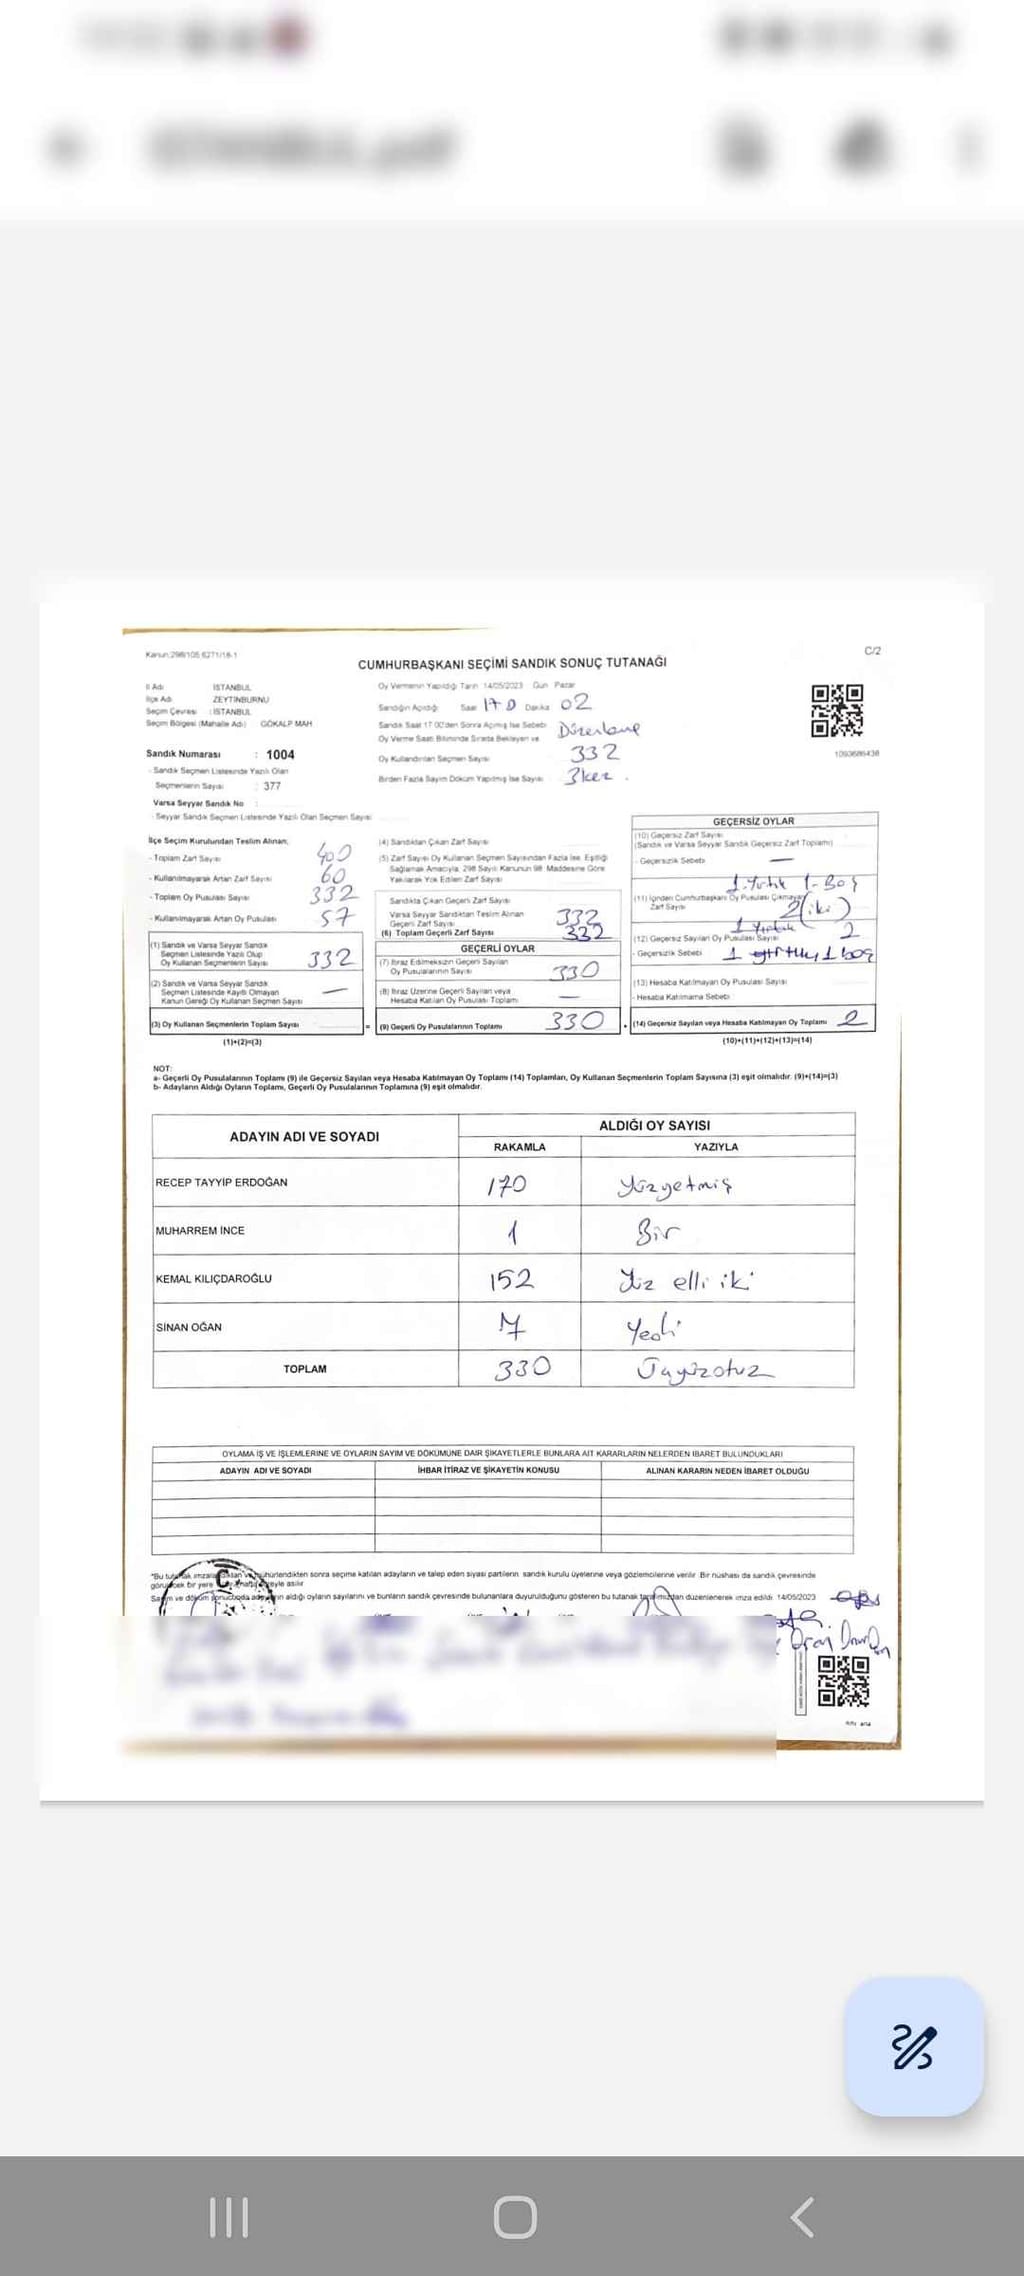 Kanun:298/105 6271/18-1
C/2
CUMHURBAŞKANI SEÇİMİ SANDIK SONUÇ TUTANAĞI
İl Adı İSTANBUL
İlçe Adı ZEYTİNBURNU
Seçim Çevresi : İSTANBUL
Seçim Bölgesi (Mahalle Adı) GÖKALP MAH
Sandık Numarası : 1004
- Sandık Seçmen Listesinde Yazılı Olan
Seçmenlerin Sayısı : 377
Varsa Seyyar Sandık No :
- Seyyar Sandık Seçmen Listesinde Yazılı Olan Seçmen Sayısı
Oy Vermenin Yapıldığı Tarih 14/05/2023 Gün Pazar
Sandığın Açıldığı Saat 17 0 Dakika 02
Sandık Saat 17:00'den Sonra Açılmış İse Sebebi
Oy Verme Saati Bitiminde Sırada Bekleyen ve
Oy Kullandırılan Seçmen Sayısı 332
Birden Fazla Sayım Döküm Yapılmış İse Sayısı 3 kez .
1093686438
İlçe Seçim Kurulundan Teslim Alınan;
- Toplam Zarf Sayısı 400
- Kullanılmayarak Artan Zarf Sayısı 60
- Toplam Oy Pusulası Sayısı 332
- Kullanılmayarak Artan Oy Pusulası 57
(1) Sandık ve Varsa Seyyar Sandık
Seçmen Listesinde Yazılı Olup
Oy Kullanan Seçmenlerin Sayısı 332
(2) Sandık ve Varsa Seyyar Sandık
Seçmen Listesinde Kayıtlı Olmayan
Kanun Gereği Oy Kullanan Seçmen Sayısı —
(3) Oy Kullanan Seçmenlerin Toplam Sayısı =
(1)+(2)=(3)
(4) Sandıktan Çıkan Zarf Sayısı
(5) Zarf Sayısı Oy Kullanan Seçmen Sayısından Fazla İse, Eşitliği
Sağlamak Amacıyla, 298 Sayılı Kanunun 98. Maddesine Göre
Yakılarak Yok Edilen Zarf Sayısı
Sandıkta Çıkan Geçerli Zarf Sayısı
Varsa Seyyar Sandıktan Teslim Alınan
Geçerli Zarf Sayısı 332
(6) Toplam Geçerli Zarf Sayısı 332
GEÇERLİ OYLAR
(7) İtiraz Edilmeksizin Geçerli Sayılan
Oy Pusulalarının Sayısı 330
(8) İtiraz Üzerine Geçerli Sayılan veya
Hesaba Katılan Oy Pusulası Toplamı —
(9) Geçerli Oy Pusulalarının Toplamı 330
GEÇERSİZ OYLAR
(10) Geçersiz Zarf Sayısı
(Sandık ve Varsa Seyyar Sandık Geçersiz Zarf Toplamı)
- Geçersizlik Sebebi —
1 Yırtık 1-Boş
(11) İçinden Cumhurbaşkanı Oy Pusulası Çıkmayan
Zarf Sayısı 2 (iki)
1 Yırtık
(12) Geçersiz Sayılan Oy Pusulası Sayısı 2
- Geçersizlik Sebebi 1 yırtık, 1 boş
(13) Hesaba Katılmayan Oy Pusulası Sayısı
- Hesaba Katılmama Sebebi
(14) Geçersiz Sayılan veya Hesaba Katılmayan Oy Toplamı 2
(10)+(11)+(12)+(13)=(14)
NOT:
a- Geçerli Oy Pusulalarının Toplamı (9) ile Geçersiz Sayılan veya Hesaba Katılmayan Oy Toplamı (14) Toplamları, Oy Kullanan Seçmenlerin Toplam Sayısına (3) eşit olmalıdır. (9)+(14)=(3)
b- Adayların Aldığı Oyların Toplamı, Geçerli Oy Pusulalarının Toplamına (9) eşit olmalıdır.
ADAYIN ADI VE SOYADI
ALDIĞI OY SAYISI
RAKAMLA YAZIYLA
RECEP TAYYİP ERDOĞAN 170 Yüzyetmiş
MUHARREM İNCE 1 Bir
KEMAL KILIÇDAROĞLU 152 Yüz elli iki
SİNAN OĞAN 7 Yedi
TOPLAM 330 Üçyüzotuz
OYLAMA İŞ VE İŞLEMLERİNE VE OYLARIN SAYIM VE DÖKÜMÜNE DAİR ŞİKAYETLERLE BUNLARA AİT KARARLARIN NELERDEN İBARET BULUNDUKLARI
ADAYIN ADI VE SOYADI İHBAR İTİRAZ VE ŞİKAYETİN KONUSU ALINAN KARARIN NEDEN İBARET OLDUĞU
*Bu tutanak imzalandıktan ve mühürlendikten sonra seçime katılan adayların ve talep eden siyasi partilerin sandık kurulu üyelerine veya gözlemcilerine verilir. Bir nüshası da sandık çevresinde
Sayım ve döküm sonucunda adayların aldığı oyların sayılarını ve bunların sandık çevresinde bulunanlara duyurulduğunu gösteren bu tutanak tarafımızdan düzenlenerek imza edildi. 14/05/2023